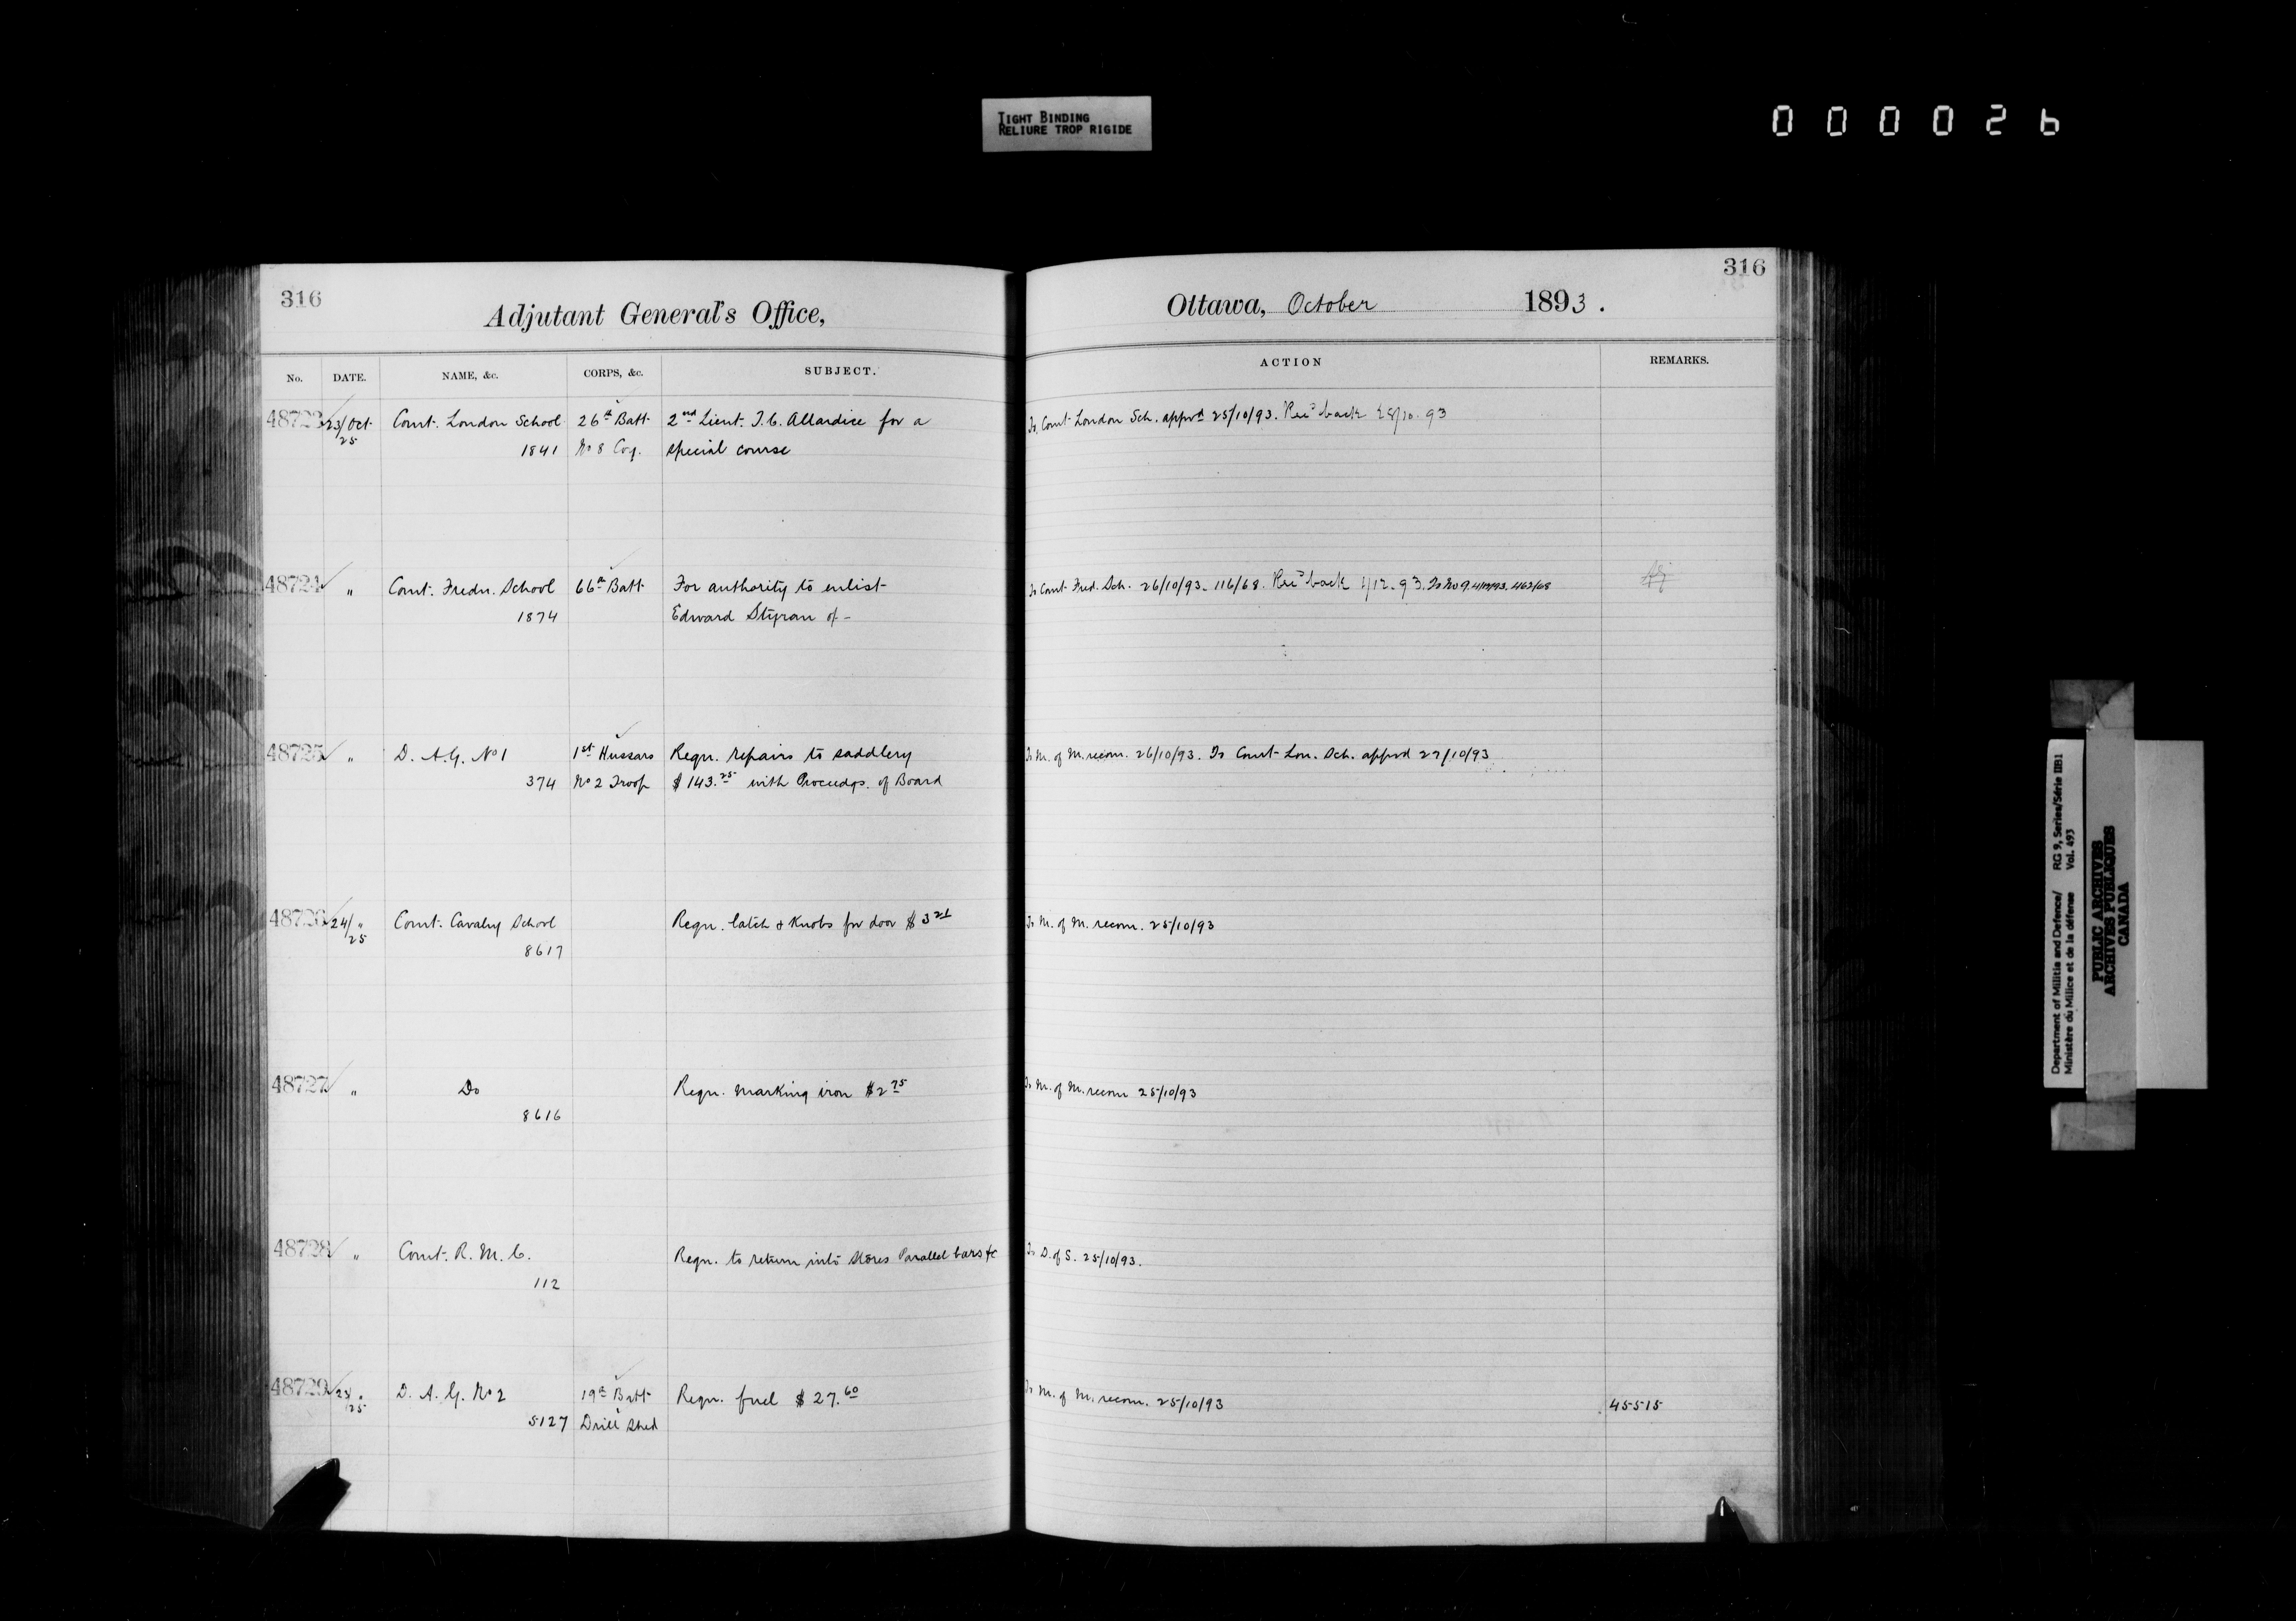 TIGHT BINDING
RELIURE TROP RIGIDE
000026
316
Adjutant General's Office,
No. DATE. NAME, &c. CORPS, &c. SUBJECT.
48723 23/Oct Comt. London School 26th Batt 2nd Lieut. J.C. Allardice for a
25 1841 No 8 Coy. special course
48724 " Comt. Fredn. School 66th Batt For authority to enlist
1874 Edward Stiran of -
48725 " D. A.G. No 1 1st Hussars Reqn. repairs to saddlery
374 No 2 Troop $ 143.25 with Proceedgs. of Board
48726 24/ " Comt. Cavalry School Reqn. latch & knobs for door $ 3
25 8617
48727 " Do Reqn. marking iron $2 75
8616
48728 " Comt. R. M. C. Reqn. to return into Stores Parallel bars &c
112
48729 23/ " D. A. G. No 2 19th Batt Reqn. fuel $ 27.60
25 5127 Drill Shed
316
Ottawa, October 1893.
ACTION REMARKS.
To Comt London Sch. apprd 25/10/93. Recd back 28/10.93
To Comt Fred. Sch. 26/10/93. 116/68. Recd back 1/12.93. To No 9. 4/12/93. 463/68
To M. of M. recom. 26/10/93. To Comt Lon. Sch. apprd 27/10/93
To M. of M. recom. 25/10/93
To M. of M. recom 25/10/93
To D. of S. 25/10/93.
To M. of M. recom. 25/10/93 45515
Department of Militia and Defence/ RG 9, Series/Série IIB1
Ministère du Milice et de la défense Vol. 493
PUBLIC ARCHIVES
ARCHIVES PUBLIQUES
CANADA